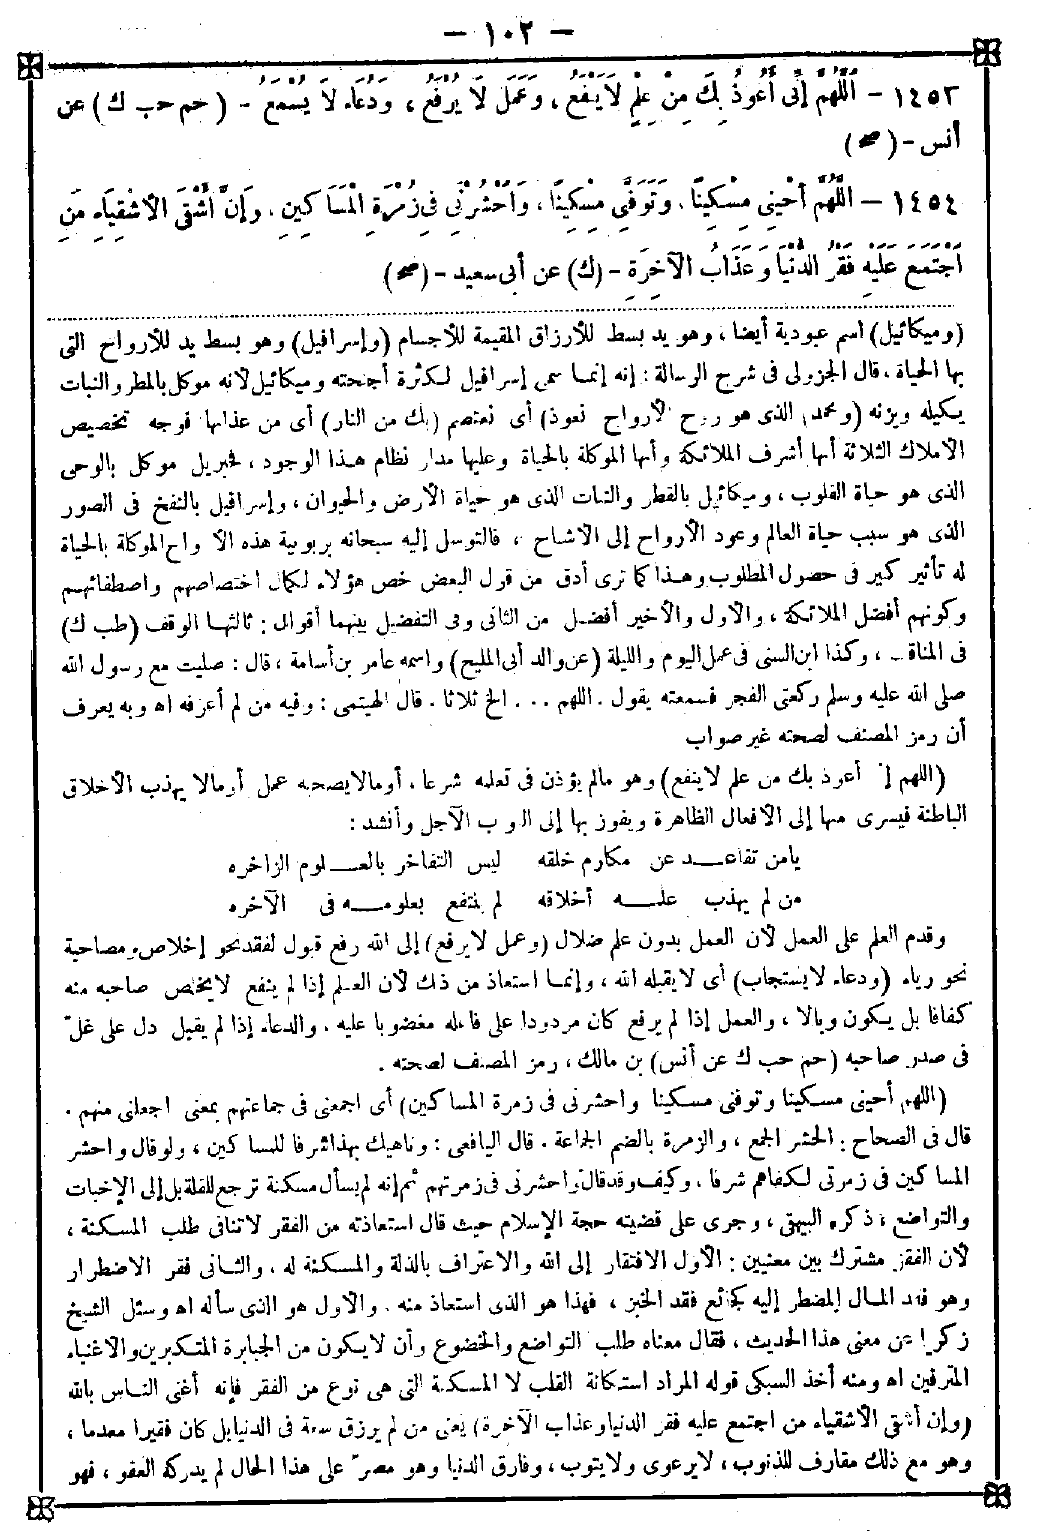 – ١٠٢ –
١٤٥٣ – اَللّٰهُمَّ إِنِّى أَعُوذُ بِكَ مِنْ عِلْمٍ لَا يَنْفَعُ، وَعَمَلٍ لَا يُرْفَعُ، وَدُعَاءٍ لَا يُسْمَعُ – (حم حب ك) عن
أنس – (صح)
١٤٥٤ – اللَّهُمَّ أَحْيِنِى مِسْكِينًا، وَتَوَفَّنِى مِسْكِينًا، وَاحْشُرْنِى فِى زُمْرَةِ الْمَسَاكِينِ، وَإِنَّ أَشْقَى الْأَشْقِيَاءِ مَنِ
اجْتَمَعَ عَلَيْهِ فَقْرُ الدُّنْيَا وَعَذَابُ الْآخِرَةِ – (ك) عن أبى سعيد – (صح)
(وميكائيل) اسم عبودية أيضا، وهو يد بسط للأرزاق المقيمة للأجسام (وإسرافيل) وهو بسط يد للأرواح التى
بها الحياة، قال الجزولى فى شرح الرسالة: إنه إنما سمى إسرافيل لكثرة أجنحته وميكائيل لأنه موكل بالمطر والنبات
يكيله ويزنه (ومحمد) الذى هو روح الأرواح (نعوذ) أى نعتصم (بك من النار) أى من عذابها فوجه تخصيص
الأملاك الثلاثة أنها أشرف الملائكة وأنها الموكلة بالحياة وعليها مدار نظام هذا الوجود، فجبريل موكل بالوحى
الذى هو حياة القلوب، وميكائيل بالقطر والنبات الذى هو حياة الأرض والحيوان، وإسرافيل بالنفخ فى الصور
الذى هو سبب حياة العالم وعود الأرواح إلى الأشباح، فالتوسل إليه سبحانه بربوبية هذه الأرواح الموكلة بالحياة
له تأثير كبير فى حصول المطلوب وهذا كما ترى أدق من قول البعض خص هؤلاء لكمال اختصاصهم واصطفائهم
وكونهم أفضل الملائكة، والأول والأخير أفضل من الثانى وفى التفضيل بينهما أقوال: ثالثها الوقف (طب ك)
فى المناقب، وكذا ابن السنى فى عمل اليوم والليلة (عن والد أبى المليح) واسمه عامر بن أسامة، قال: صليت مع رسول الله
صلى الله عليه وسلم ركعتى الفجر فسمعته يقول. اللهم ... الخ ثلاثا. قال الهيتمى: وفيه من لم أعرفه اه وبه يعرف
أن رمز المصنف لصحته غير صواب
(اللهم إنى أعوذ بك من علم لا ينفع) وهو مالم يؤذن فى تعلمه شرعا، أو مالا يصحبه عمل أو مالا يهذب الأخلاق
الباطنة فيسرى منها إلى الأفعال الظاهرة ويفوز بها إلى الثواب الآجل وأنشد:
يامن تقاعد عن مكارم خلقه ليس التفاخر بالعلوم الزاخره
من لم يهذب علمه أخلاقه لم ينتفع بعلومه فى الآخره
وقدم العلم على العمل لأن العمل بدون علم ضلال (وعمل لا يرفع) إلى الله رفع قبول لفقد نحو إخلاص ومصاحبة
نحو رياء (ودعاء لا يستجاب) أى لا يقبله الله، وإنما استعاذ من ذلك لأن العلم إذا لم ينفع لا يخلص صاحبه منه
كفافا بل يكون وبالا، والعمل إذا لم يرفع كان مردودا على فاعله مغضوبا عليه، والدعاء إذا لم يقبل دل على غلّ
فى صدر صاحبه (حم حب ك عن أنس) بن مالك، رمز المصنف لصحته.
(اللهم أحينى مسكينا وتوفنى مسكينا واحشرنى فى زمرة المساكين) أى اجمعنى فى جماعتهم بمعنى اجعلنى منهم.
قال فى الصحاح: الحشر الجمع، والزمرة بالضم الجماعة. قال اليافعى: وناهيك بهذا شرفا للمساكين، ولو قال واحشر
المساكين فى زمرتى لكفاهم شرفا، وكيف وقد قال واحشرنى فى زمرتهم ثم إنه لم يسأل مسكنة ترجع للقلة بل إلى الإخبات
والتواضع، ذكره البيهقى، وجرى على قضيته حجة الإسلام حيث قال استعاذته من الفقر لا تنافى طلب المسكنة،
لأن الفقر مشترك بين معنيين: الأول الافتقار إلى الله والاعتراف بالذلة والمسكنة له، والثانى فقر الاضطرار
وهو فقد المال المضطر إليه كجائع فقد الخبز، فهذا هو الذى استعاذ منه، والأول هو الذى سأله اه وسئل الشيخ
زكريا عن معنى هذا الحديث، فقال معناه طلب التواضع والخضوع وأن لا يكون من الجبابرة المتكبرين والأغنياء
المترفين اه ومنه أخذ السبكى قوله المراد استكانة القلب لا المسكنة التى هى نوع من الفقر فإنه أغنى الناس بالله
(وإن أشقى الأشقياء من اجتمع عليه فقر الدنيا وعذاب الآخرة) يعنى من لم يرزق سعة فى الدنيا بل كان فقيرا معدما،
وهو مع ذلك مقارف للذنوب، لا يرعوى ولا يتوب، وفارق الدنيا وهو مصرّ على هذا الحال لم يدركه العفو، فهو